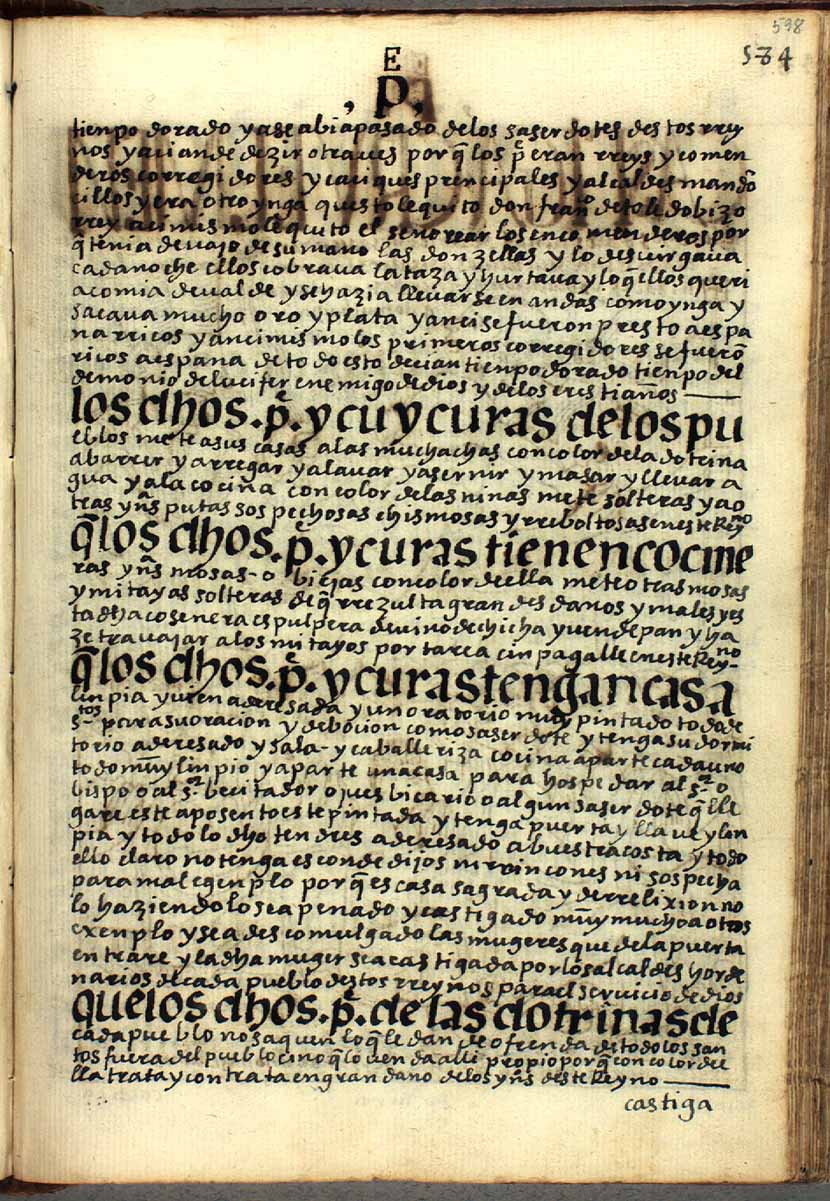 598
534
E
, p̄ ,
tienpo dorado y ase abia pasado de los saserdotes destos rrey
nos y aci an de dezir otra ves por q̄ los p̄. eran rreys y comen
deros corregidores y caciques prencipales y alcaldes mandō
cillos y era otro ynga questo le quito don fran.co de toledo bizo
rrey aci mismo le quito el señorear los encomenderos por
q̄ tenia devajo de su mano las donzellas y lo desvirgava
cada noche ellos cobrava la taza y hurtava y lo q̄ ellos queri
a comia devalde y se hazia llevarse en andas como ynga y
sacava mucho oro y plata y anci se fueron presto a espa
na rricos y anci mismo los primeros corregidores se fuerō
ricos a espana de todo esto decian tienpo dorado tienpo del
demonio de lucifer enemigo de dios y de los cristianos
los dhos. p̄. y cu y curas de los pu
eblos mete a sus casas a las muchachas con color de la dotrina
a barrer y arregar y a lavar y a sernir y masar y llevar a
gua y a la cocina con color de las ninas mete solteras y a o
tras yn̄s putas sospechosas chismosas y rreboltosas en este Rey.no
q̄ los dhos. p̄. y curas tienen cocine
ras yn̄s mosas o biejas con color de ella mete otras mosas
y mitayas solteras de q̄ rrezulta grandes danos y males y es
ta dha cosenera es pulpera de vino de chicha y vende pan y ha
ze travajar a los mitayos por tarea cin pagalle en este Rey.no
q̄ los dhos. p̄. y curas tengan casa
linpia y vien aderesada y un oratorio muy pintado todo de
s.tos para su oracion y debocion como saserdote y tenga su dormi
torio aderesado y sala y caballeriza cocina aparte cada uno
todo muy linpio y aparte una casa para hospedar al s.r o
bispo o al s.r becitador o jues bicario o algun saserdote q̄ lle
gare este aposento este pintada y tenga puerta y llave y lin
pia y todo lo dho tendres aderesado a buestra costa y todo
ello claro no tenga escondedijos ni rrincones ni sospecha
para mal egenplo por q̄ es casa sagrada y de rrelixion no
lo haziendolo sea penado y castigado muy mucho a otros
exenplo y sea descomulgado las mugeres que de la puerta
entrare y la dha muger sea castigada por los alcaldes horde
narios de cada pueblo destos rreynos para el servicio de dios
que los dhos. p̄. de las dotrinas de
cada pueblo no saquen lo q̄ le dan de ofrenda de todo los san
tos fuera del pueblo cino q̄ lo venda alli propio porq̄ con color de e
lla trata y contrata en gran dano de los yn̄s deste Reyno
castiga